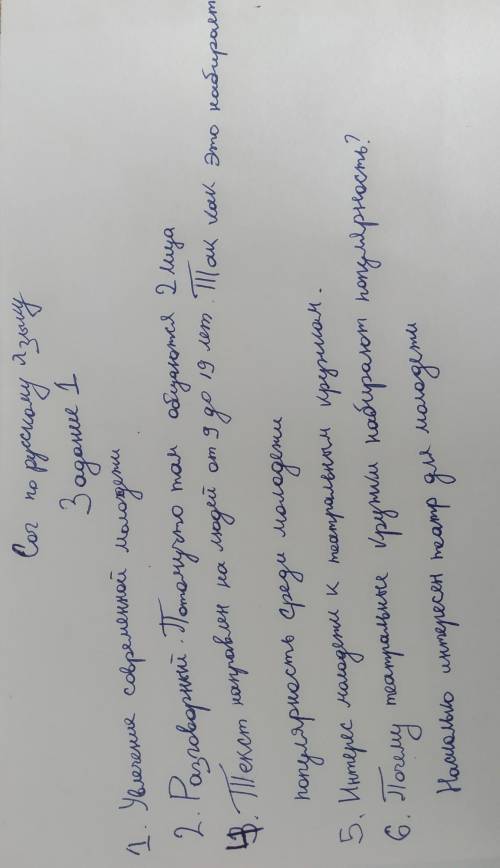 Соч по русскому языку
Задание 1
1. Увлечение современной молодежи
2. Разговорный. Потомучто там общаются 2 лица
4. Текст направлен на людей от 9 до 19 лет. Так как это набирает
популярность среди молодежи
5. Интерес молодежи к театральным кружкам.
6. Почему театральные кружки набирают популярность?
Насколько интересен театр для молодежи